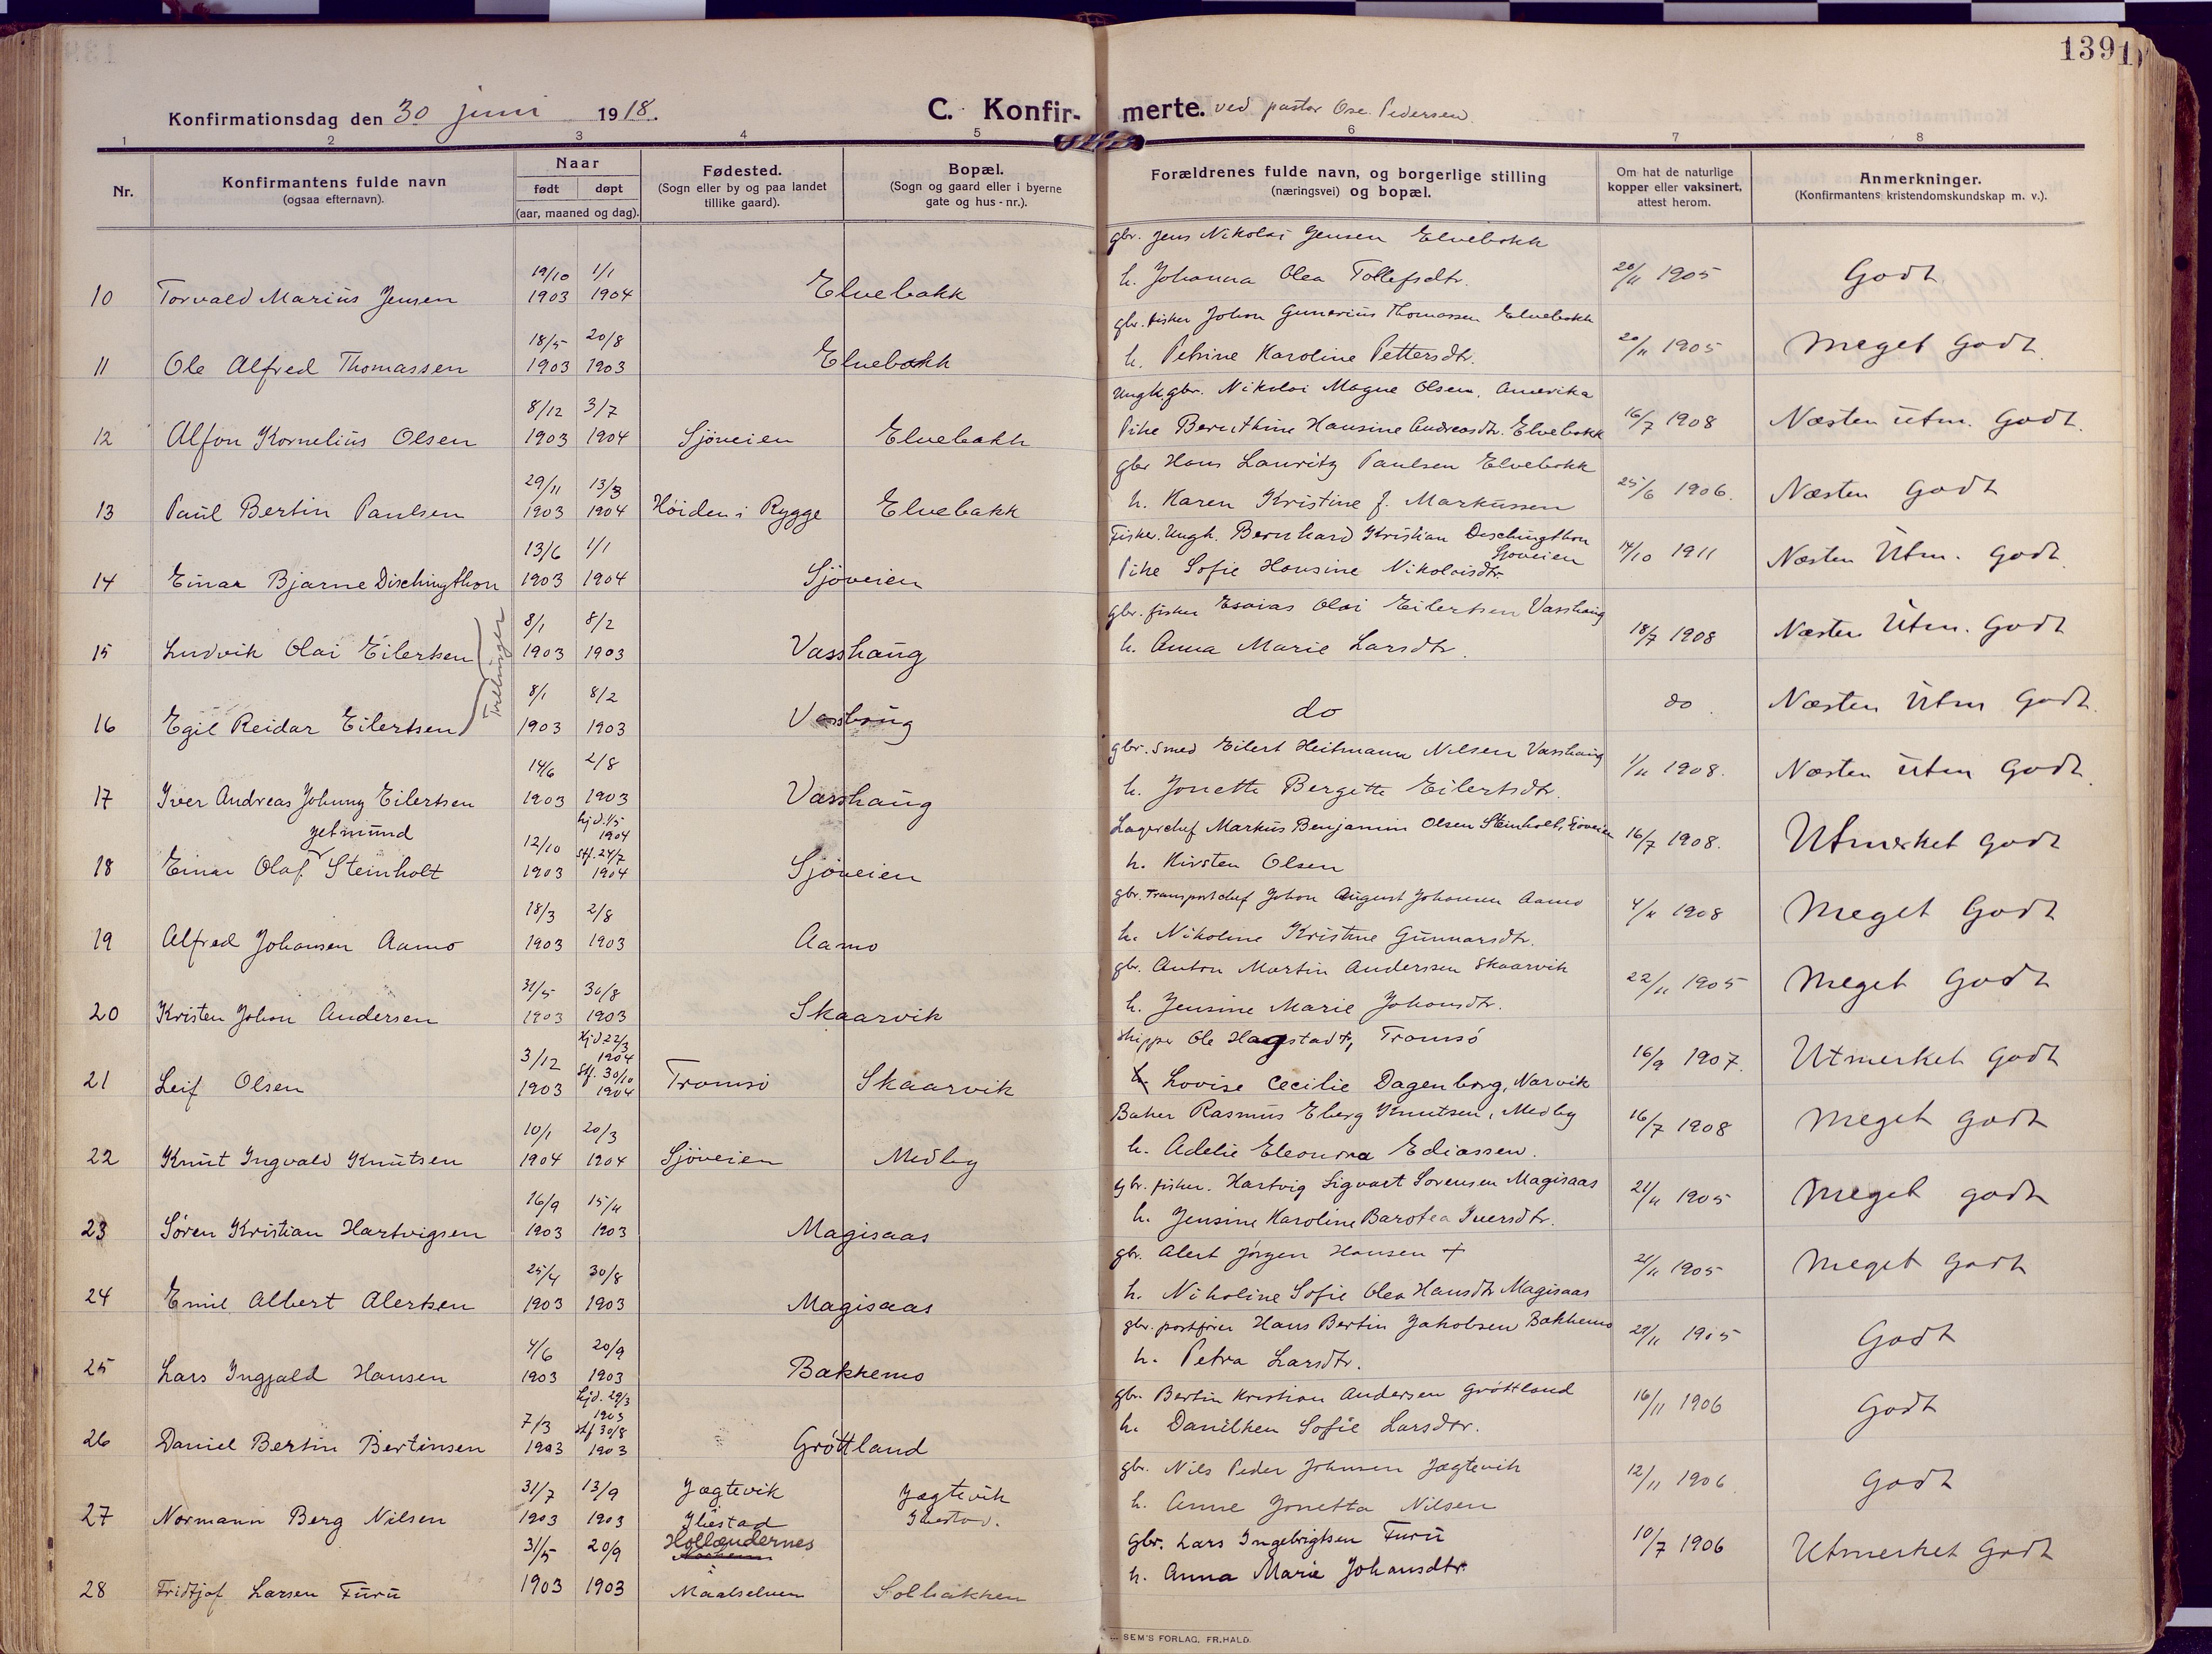 139
Konfirmationsdag den 30 juni 1918.
C. Konfirmerte. ved pastor Ose Pedersen
1 2 3 4 5 6 7 8
Nr.
Konfirmantens fulde navn
(ogsaa efternavn).
Naar
født døpt
(aar, maaned og dag).
Fødested.
(Sogn eller by og paa landet
tillike gaard).
Bopæl.
(Sogn og gaard eller i byerne
gate og hus-nr.).
Forældrenes fulde navn, og borgerlige stilling
(næringsvei) og bopæl.
Om hat de naturlige
kopper eller vaksinert,
attest herom.
Anmerkninger.
(Konfirmantens kristendomskundskap m. v.).
gbr. Jens Nikolai Jensen Elvebakk
19/10 1/1
h. Johanna Olea Tollefsdtr. 20/11 1905 Godt
10 Torvald Marius Jensen 1903 1904 Elvebakk
gbr. fisker Johan Gunerius Thomassen Elvebakk
18/5 20/8
h. Petrine Karoline Pettersdtr. 20/11 1905 Meget Godt.
11 Ole Alfred Thomassen 1903 1903 Elvebakk
Ungk. gbr. Nikolai Magne Olsen, Amerika
8/12 3/7
Pike Bernthine Hansine Andreasdtr. Elvebakk 16/7 1908 Næsten utm. Godt.
12 Alfon Kornelius Olsen 1903 1904 Sjöveien Elvebakk
gbr Hans Lauritz Paulsen Elvebakk
29/11 13/3
h. Karen Kristine f. Markussen 25/6 1906. Næsten Godt
13 Paul Bertin Paulsen 1903 1904 Höiden i Rygge Elvebakk
Fisker. Ungk. Bernhard Kristian Dischingthon
Sjoveien
13/6 1/1
Pike Sofie Hansine Nikolaisdtr 14/10 1911 Næsten Utm. Godt.
14 Einar Bjarne Dischingthon 1903 1904 Sjöveien
gbr. fisker Esaias Olai Eilertsen Vasshaug
8/1 8/2
h. Anna Marie Larsdtr. 18/7 1908 Næsten Utm. Godt
15 Ludvik Olai Eilertsen 1903 1903 Vasshaug
Tvillinger
8/1 8/2
do do. Næsten Utm Godt.
16 Egil Reidar Eilertsen 1903 1903 Vasshaug
gbr. Smed Eilert Heitmann Nilsen Vasshaug
14/6 2/8
h. Jonette Bergitte Eilertsdtr. 1/11 1908. Næsten utm Godt.
17 Iver Andreas Johnny Eilertsen 1903 1903 Vasshaug
Lagerchef Markus Benjamin Olsen Steinholt, Sjöveien
hjd. 1/5
1904
12/10 stf. 24/7
h. Kirsten Olsen 16/7 1908. Utmerket Godt
18 Einar Olaf Steinholt 1903 1904 Sjöveien
gbr. Transportchef Johan August Johansen Aamo
18/3 2/8
h. Nikoline Kristine Gunnarsdtr. 4/11 1908 Meget Godt
19 Alfred Johansen Aamo 1903 1903 Aamo
gbr. Anton Martin Anderssen Skaarvik
31/5 30/8
h. Jensine Marie Johansdtr. 22/11 1905 Meget Godt
20 Kristen Johan Andersen 1903 1903 Skaarvik
Skipper Ole Hagstad †, Tromsö
hjd 22/3
1904
3/12 stf. 30/10
h. Lovise Cecilie Dagenborg, Narvik 16/9 1907. Utmerket Godt
21 Leif Olsen 1903 1904 Tromsö Skaarvik
Baker Rasmus Eberg Knutsen, Medby
10/1 20/3
h. Adelie Eleonora Ediassen. 16/7 1908 Meget Godt
22 Knut Ingvald Knutsen 1904 1904 Sjöveien Medby
gbr. fisker. Hartvig Sigvart Sørensen Magisaas
16/9 15/11
h. Jensine Karoline Barotea Iversdtr. 21/11 1905 Meget godt
23 Søren Kristian Hartvigsen 1903 1903 Magisaas
gbr. Alert Jörgen Hansen †
25/4 30/8
h. Nikoline Sofie Olea Hansdtr Magisaas 21/11 1905 Meget Godt
24 Emil Albert Alertsen 1903 1903 Magisaas
gbr. postfører Hans Bertin Jakobsen Bakkemo
4/6 20/9
h. Petra Larsdtr. 29/11 1905 Godt
25 Lars Ingjald Hansen 1903 1903 Bakkemo
gbr. Bertin Kristian Andersen Gröttland
hjd. 29/3
1903
7/3 stf 30/8
h. Danilken Sofie Larsdtr. 16/11 1906 Godt
26 Daniel Bertin Bertinsen 1903 1903 Gröttland
gbr. Nils Peder Johnsen Jægtevik
31/7 13/9 Jægtevik Jægtevik
h. Anne Jonetta Nilsen 12/11 1906. Godt
27 Normann Berg Nilsen 1903 1903 Ibestad Ibestad.
gbr. Lars Ingebrigtsen Furu
31/5 20/9 Hollendernes
i
h. Anna Marie Johansdtr. 10/7 1906 Utmerket Godt
28 Fridtjof Larsen Furu 1903 1903 Maalselven Solbakken
SEM'S FORLAG, FR.HALD.